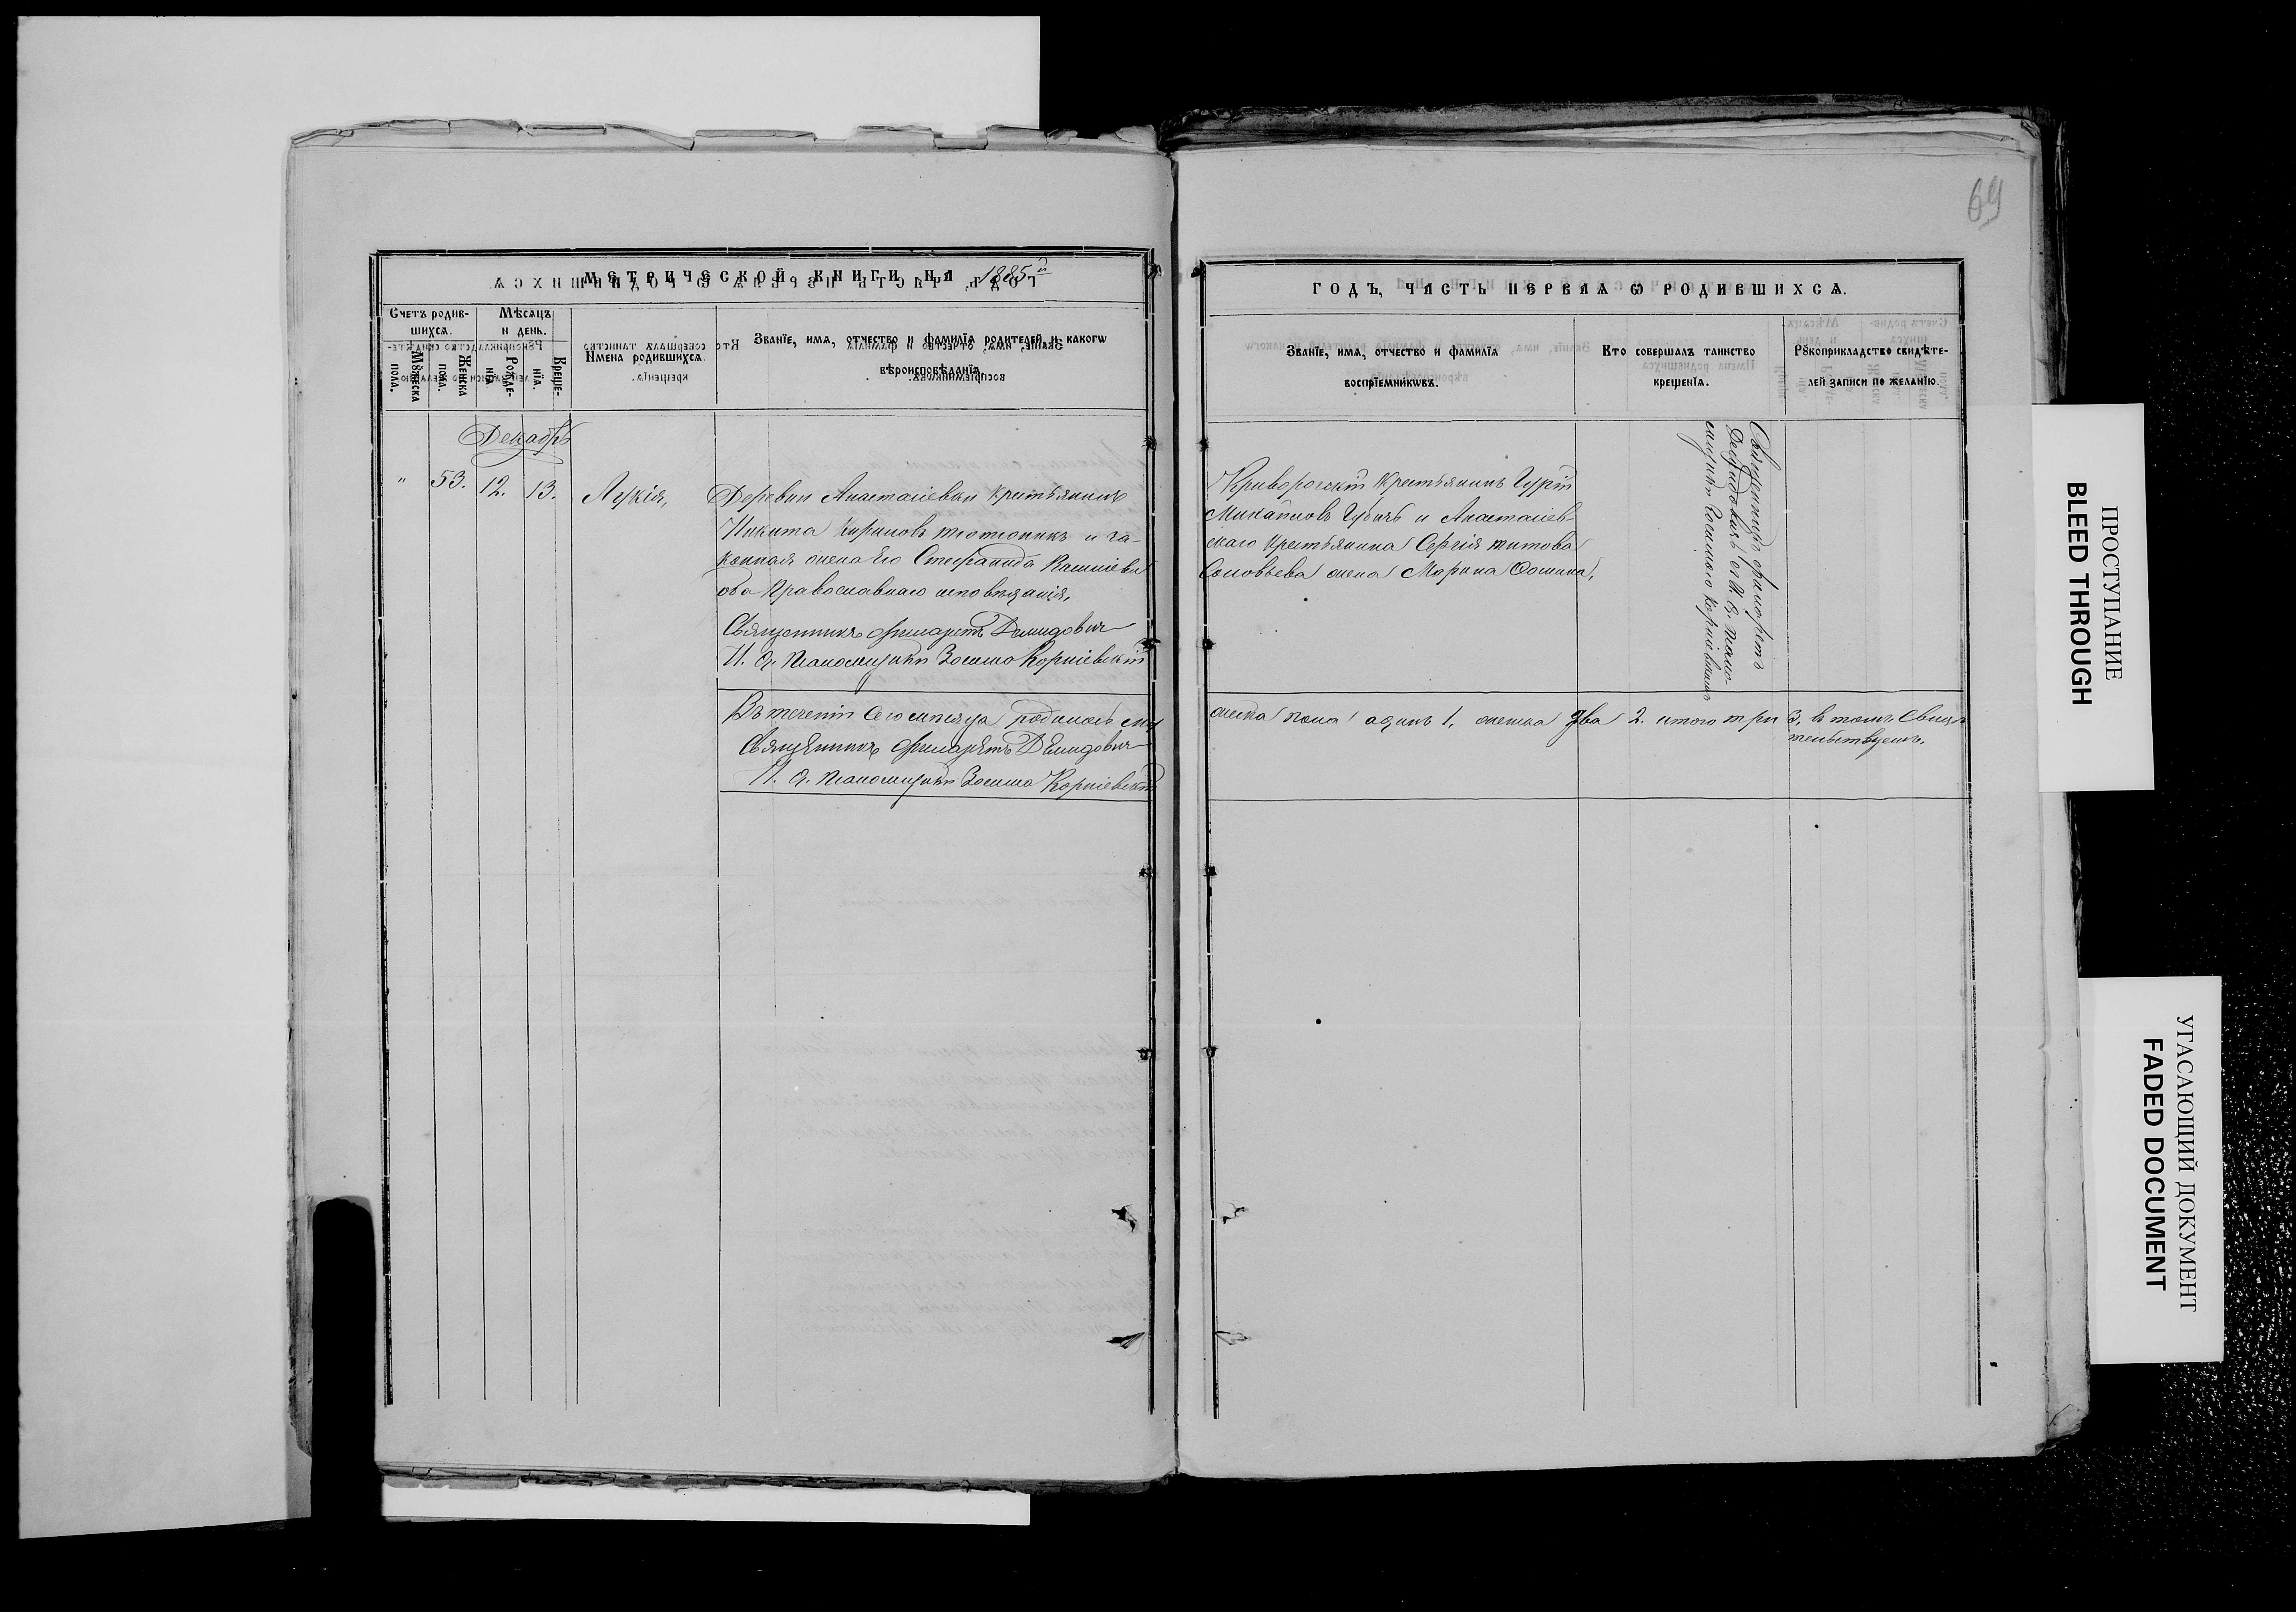 69
МЕТРИЧЕСКОЙ КНИГИ НА 1885й
ГОДЪ, ЧАСТЬ ПЕРВАЯ Ѡ РОДИВШИХСѦ.
Счетъ родив-
шихсѧ.
Мѣсѧцъ
и день.
Мꙋжеска
пола.
Женска
пола.
Рожде-
нїѧ
Креще-
нїѧ.
Имена родившихсѧ.
Званїе, имѧ, отчество и фамилїѧ родителей, и какогѡ
вѣроисповѣданїѧ.
Званїе, имѧ, отчество и фамилїѧ
воспрїемникѡвъ.
Кто совершалъ таинство
крещенїѧ.
Рꙋкоприкладство свидѣте-
лей записи по желанїю.
Декабрь
" 53. 12. 13. Лукія,
Деревни Анастасіевки крестьянинъ
Никита Кириловъ Тютюникъ и за-
конная жена его Стефанида
оба Православнаго исповѣданія,
Священникъ Филаретъ Демидовичъ
И. д. псаломщика Зосима Корніевскій
Криворожскій крестьянинъ Гурій
Михайловъ Губичъ и Анастасіев-
скаго крестьянина Сергія Титова
Соловьева жена Марина Фомина,
Священникъ Филаретъ
Демидовичъ съ И. д. псало-
мщика Зосимою Корніевскимъ
Въ теченіи сего мѣсяца родилось му
жеска пола одинъ 1, женска два 2. итого три 3, въ томъ свидѣ
тельствуемъ.
Священникъ Филаретъ Демидовичъ
И. д. псаломщика Зосима Корніевскій
ПРОСТУПАНИЕ
BLED THROUGH
УГАСАЮЩИЙ ДОКУМЕНТ
FADED DOCUMENT